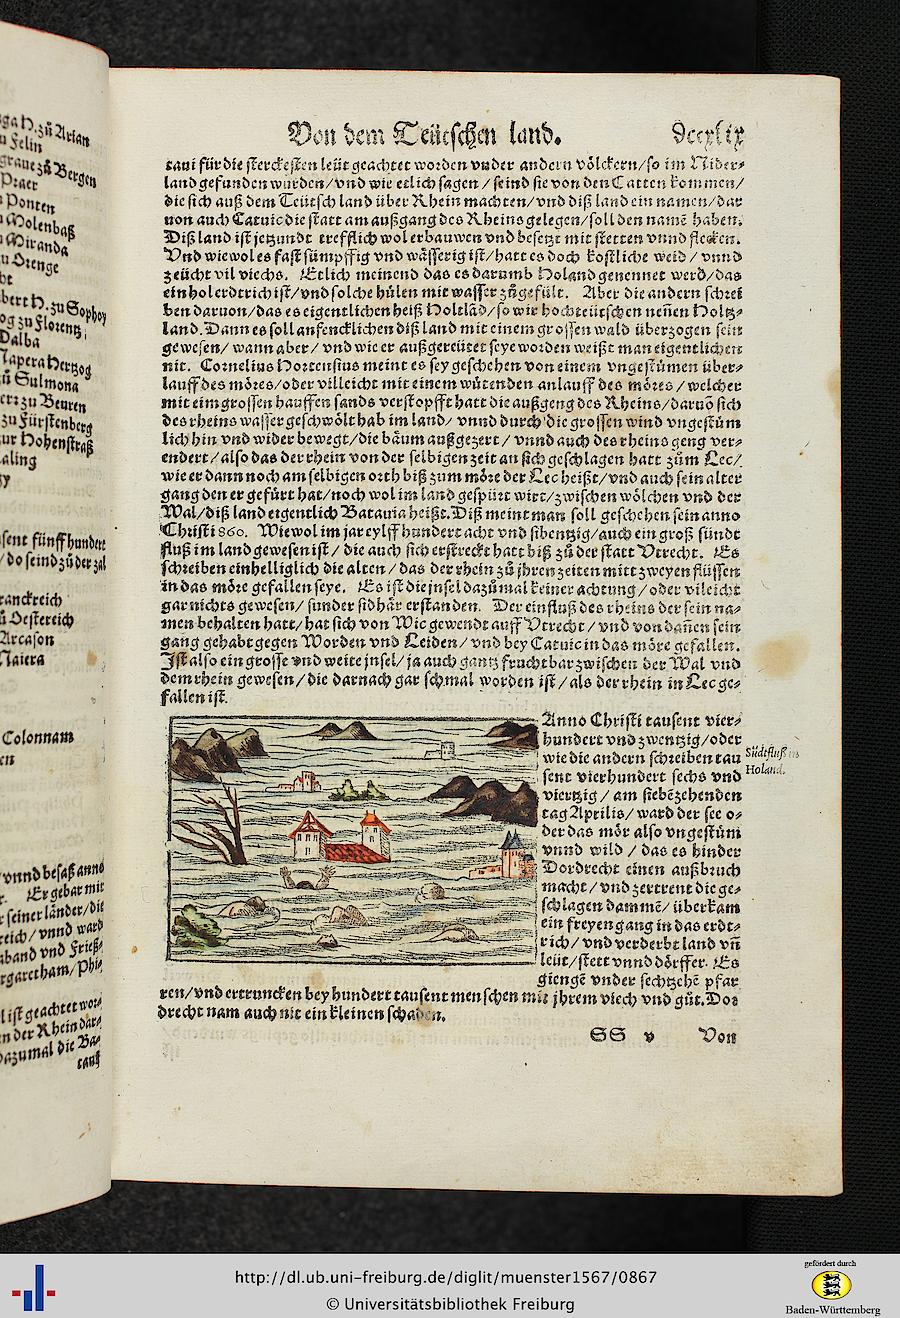 zů Arian
Felin
graue zů Bergen
Praet
Ponten
Molenbaß
Miranda
Orenge
bert H. zu Sophoy
og zu Florentz
Dalba
Napera Hertzog
zů Sulmona
zu Beuren
zu Fürstenberg
zur Hohenstraß
aling
sent fünff hundert
/ do seind zů der zal
ranckreich
ů Oestereich
Arcason
Naiera
Colonnam
en
/ vnnd besaß anno
Er gebar mit
seiner länder / die
reich / vnnd ward
aband vnd Frieß-
rgaretham / Phi-
l ist geachtet wor-
n der Rhein dar-
azumal die Ba-
taui
Von dem Teütschen land. Dccxlix
taui für die sterckesten leüt geachtet worden vnder andern völckern / so im Nider-
land gefunden wurden / vnd wie etlich sagen / seind sie von den Catten kommen /
die sich auß dem Teütsch land über Rhein machten / vnd diß land ein namen / dar
uon auch Catuic die statt am außgang des Rheins gelegen / soll den namē haben.
Diß land ist jetzundt trefflich wol erbauwen vnd besetzt mit stetten vnnd flecken.
Vnd wiewol es fast sümpffig vnd wässerig ist / hatt es doch köstliche weid / vnnd
zeücht vil viechs. Etlich meinend das es darumb Holand genennet werd / das
ein hol erdtrich ist / vnd solche hülen mit wasser zůgefült. Aber die andern schrei
ben daruon / das es eigentlichen heiß Holtlād / so wir hochteütschen neñen Holtz-
land. Dann es soll anfencklichen diß land mit einem grossen wald überzogen sein
gewesen / wann aber / vnd wie er außgereütet seye worden weißt man eigentlichen
nit. Cornelius Hortensius meint es sey geschehen von einem vngestümen über-
lauff des möres / oder villeicht mit einem wütenden anlauff des möres / welcher
mit eim grossen hauffen sands verstopfft hatt die außgeng des Rheins / daruō sich
des rheins wasser geschwölt hab im land / vnnd durch die grossen wind vngestüm
lich hin vnd wider bewegt / die bäum außgezert / vnnd auch des rheins geng ver-
endert / also das der rhein von der selbigen zeit an sich geschlagen hatt zům Lec /
wie er dann noch am selbigen orth biß zum möre der Lec heißt / vnd auch sein alter
gang den er gefürt hat / noch wol im land gespürt wirt / zwischen wölchen vnd der
Wal / diß land eigentlich Batauia heißt. Diß meint man soll geschehen sein anno
Christi 860. Wiewol im jar eylff hundert acht vnd sibentzig / auch ein groß sündt
fluß im land gewesen ist / die auch sich erstreckt hatt biß zů der statt Vtrecht. Es
schreiben einhelliglich die alten / das der rhein zů jhren zeiten mitt zweyen flüssen
in das möre gefallen seye. Es ist die jnsel dazůmal keiner achtung / oder vileicht
gar nichts gewesen / sunder sidhär erstanden. Der einfluß des rheins der sein na-
men behalten hatt / hat sich von Wic gewendt auff Vtrecht / vnd von dañen sein
gang gehabt gegen Worden vnd Leiden / vnd bey Catuic in das möre gefallen.
Ist also ein grosse vnd weite jnsel / ja auch gantz fruchtbar zwischen der Wal vnd
dem rhein gewesen / die darnach gar schmal worden ist / als der rhein in Lec ge-
fallen ist.
Anno Christi tausent vier-
hundert vnd zwentzig / oder
wie die andern schreiben tau
sent vierhundert sechs vnd
viertzig / am siebēzehenden
tag Aprilis / ward der see o-
der das mör also vngestüm
vnnd wild / das es hinder
Dordrecht einen außbruch
macht / vnd zertrent die ge-
schlagen dammē / überkam
ein freyen gang in das erdt-
rich / vnd verderbt land vñ
leüt / stett vnnd dörffer. Es
giengē vnder sechtzehē pfar
ren / vnd ertruncken bey hundert tausent menschen mit jhrem viech vnd gůt. Dor
drecht nam auch nit ein kleinen schaden.
Südtfluß in
Holand.
SS v Von
http://dl.ub.uni-freiburg.de/diglit/muenster1567/0867
© Universitätsbibliothek Freiburg
gefördert durch
Baden-Württemberg